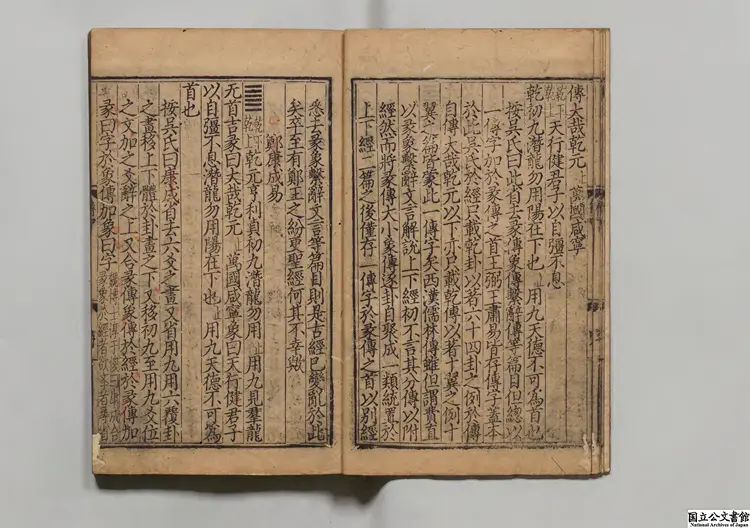 傳大哉乾元止萬國咸寧
乾下乾上天行健君子以自彊不息
乾初九潛龍勿用陽在下也止用九天德不可爲首也
按吳氏曰此省去彖傳象傳繫辭傳等篇目但總以
一傳字加於彖傳之首王弼王肅易皆存傳字蓋本
於此吳氏於經只載乾卦以者六十四卦之例於傳
自傳大哉乾元以下亦只載乾傳以者十翼之例十
翼篇皆蒙此一傳字矣西漢儒林傳雖但謂費直
以彖象繫辭文言解說上下經初不言其分傳以附
經然而將彖傳大小象傳逐卦自聚成一類統置於
上下經二篇之後僅存一傳字於彖傳之首以別經
悉去彖象繫辭文言等篇目則是古經已變亂於此
矣卒至有鄭王之紛更聖經何其不幸歟
鄭康成易
乾下乾上乾元亨利貞初九潛龍勿用止用九見羣龍
无首吉彖曰大哉乾元止萬國咸寧象曰天行健君子
以自彊不息潛龍勿用陽在下也止用九天德不可爲
首也
按吳氏曰康成省去六爻之畫又省用九用六覆卦
之畫移上下體於卦畫之下又移初九至用九爻位
之文加之爻辭之上又合彖傳象傳於經於彖傳加
彖曰字於象傳加象曰字
国立公文書館
National Archives of Japan